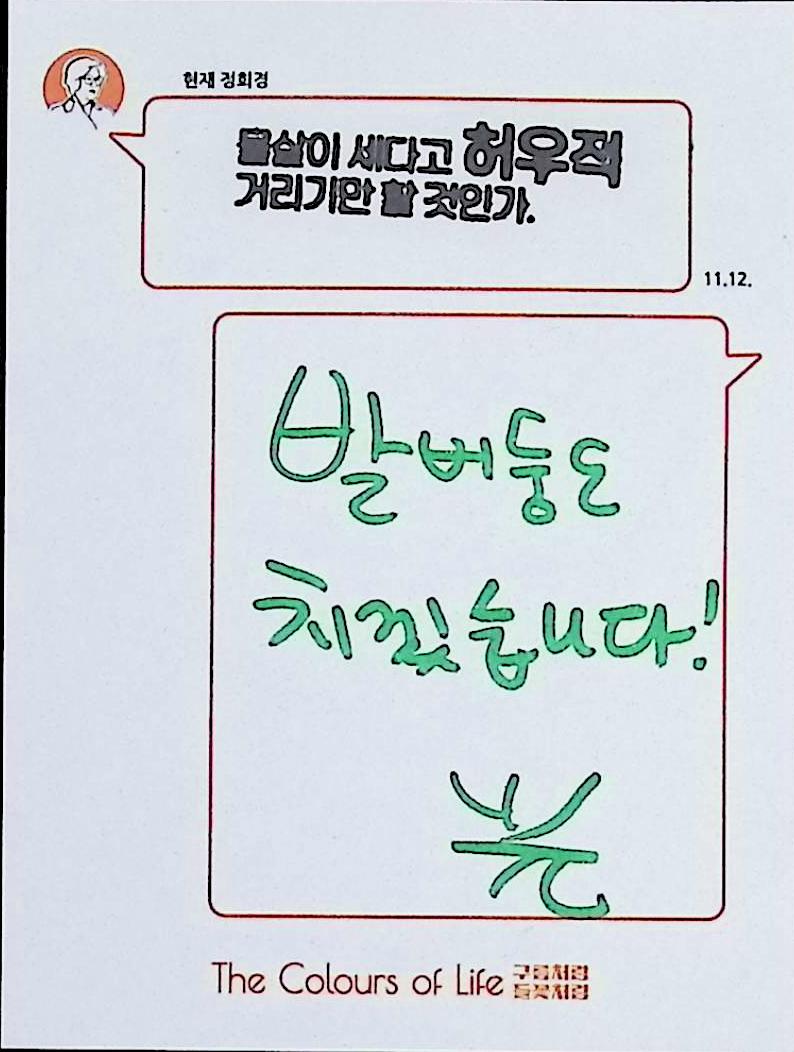 현재 정희경
물살이 세다고 허우적
거리기만 할 것인가.
11.12.
발버둥도
치겠습니다!
The Colours of Life 구름처럼
들꽃처럼